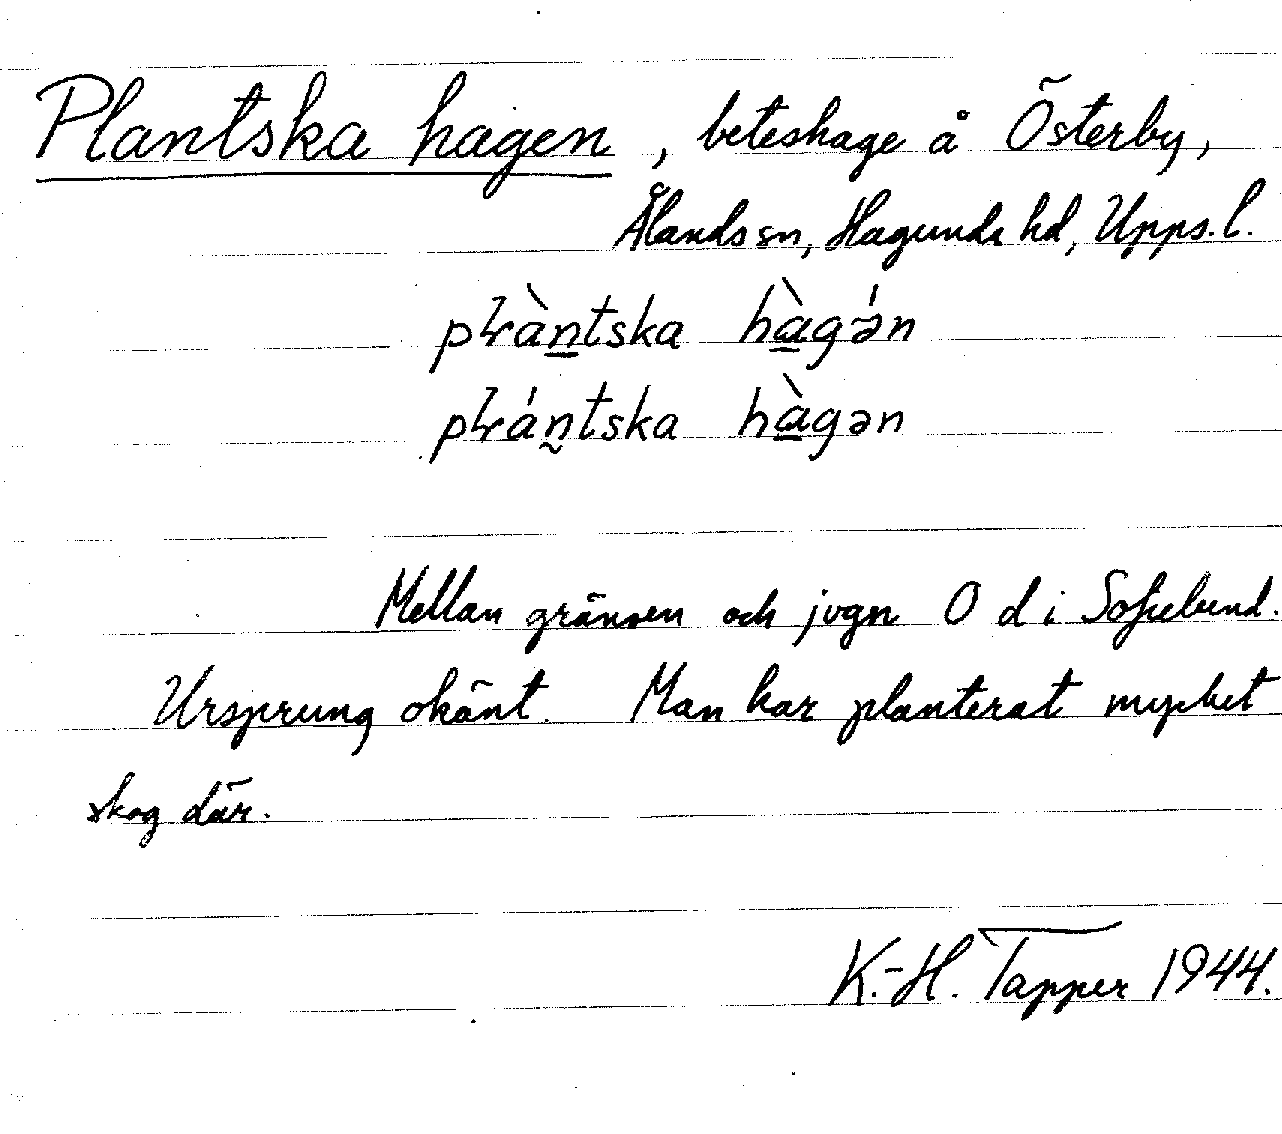 Plantska hagen, beteshage å Österby,
Ålands sn, Hagunda hd, Upps. l.
pɫàn̲tska hà̲gə́n
pɫán̰tska hà̲gən
Mellan gränsen och jvgn O d i Sofielund.
Ursprung okänt. Man har planterat mycket
skog där.
K.-H. Tapper 1944.